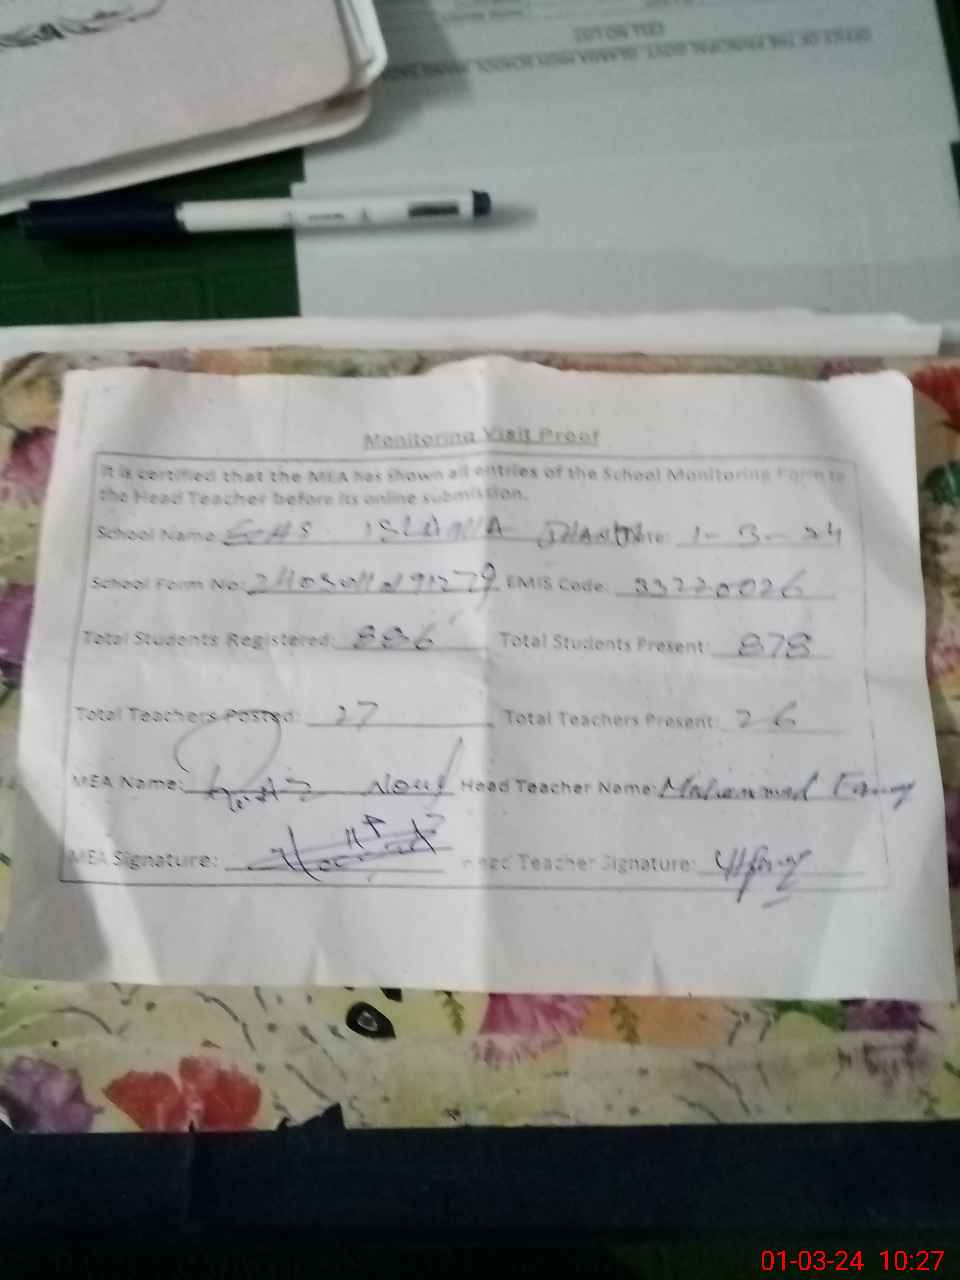 OFFICE OF THE PRINCIPAL GOVT. ISLAMIA HIGH SCHOOL
CELL NO LIST
Monitoring Visit Proof
It is certified that the MEA has shown all entries of the School Monitoring Form to
the Head Teacher before its online submission.
School Name: GHS ISLAMIA Date: 1-3-24
School Form No: EMIS Code: 33220026
Total Students Registered: 886 Total Students Present: 878
Total Teachers Posted: 27 Total Teachers Present: 26
MEA Name: Head Teacher Name: Mohammad
MEA Signature: Head Teacher Signature:
01-03-24 10:27